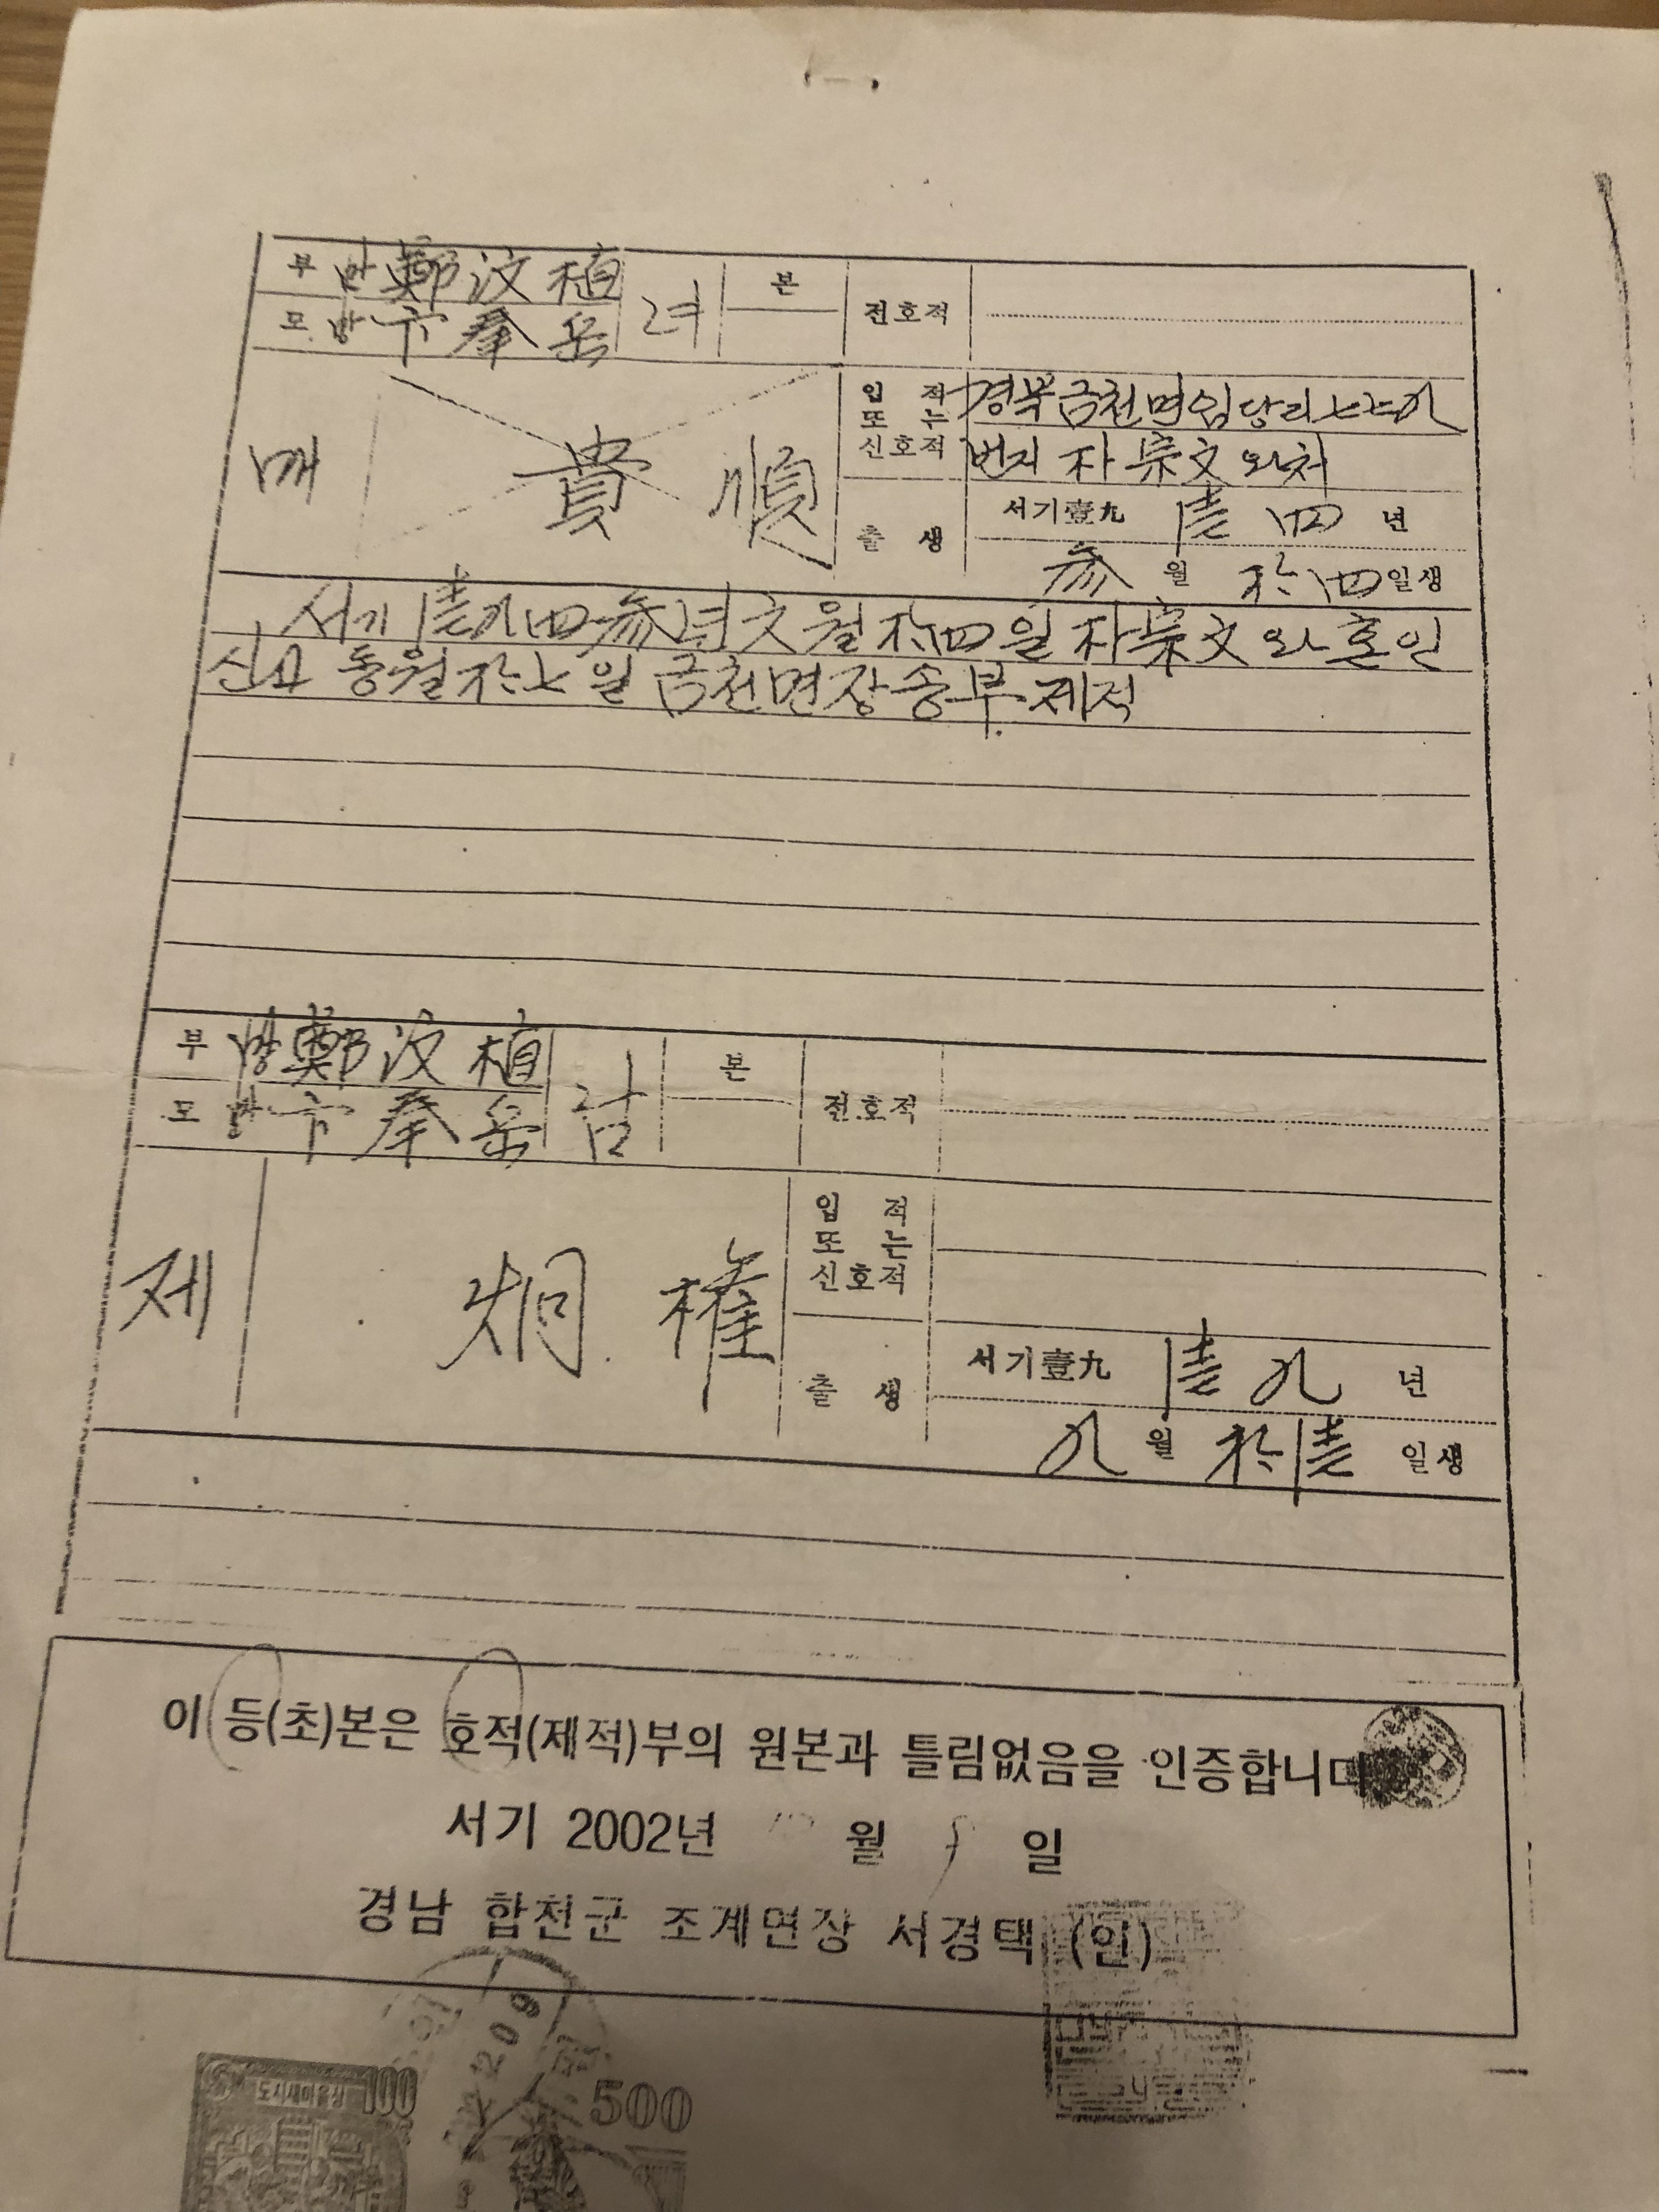 부 망 鄭汶植 녀 본 전호적
모 망 卞奉岳
매 貴順
입적 또는 신호적 경북금천면임당리七七九
번지 朴宗文와처
출생 서기壹九 壹四 년
参 월 拾四 일생
서기壹九四参년六월拾四일朴宗文와혼인
신고 동월拾七일 금천면장송부 제적
부 망 鄭汶植 남 본 전호적
모 망 卞奉岳
제 炯權
입적 또는 신호적
출생 서기壹九 壹九 년
九 월 拾壹 일생
이 등(초)본은 호적(제적)부의 원본과 틀림없음을 인증합니다
서기 2002년 월 일
경남 합천군 초계면장 서경택 (인)
도시새마을상 100
500